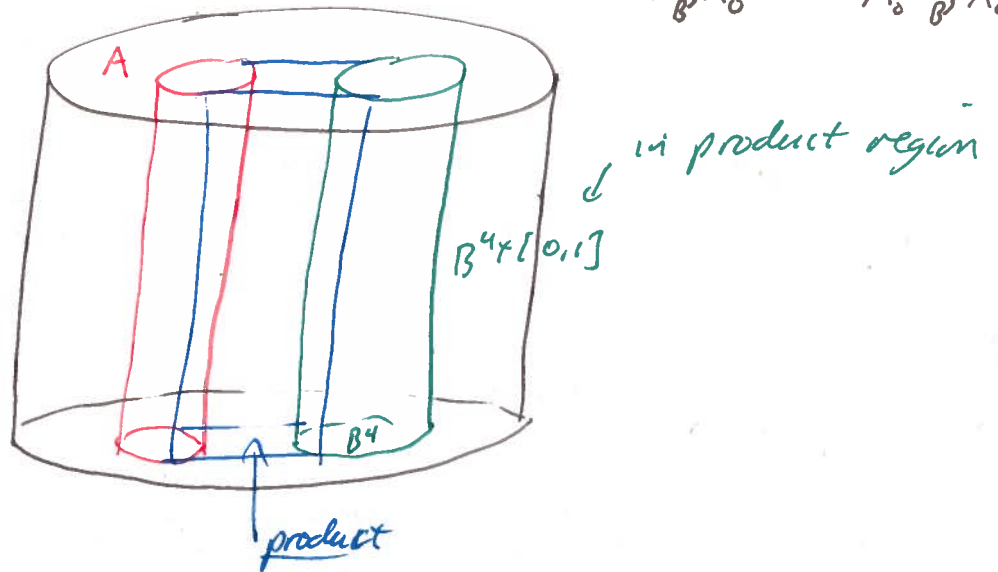 A
in product region
B⁴×[0,1]
B⁴
product